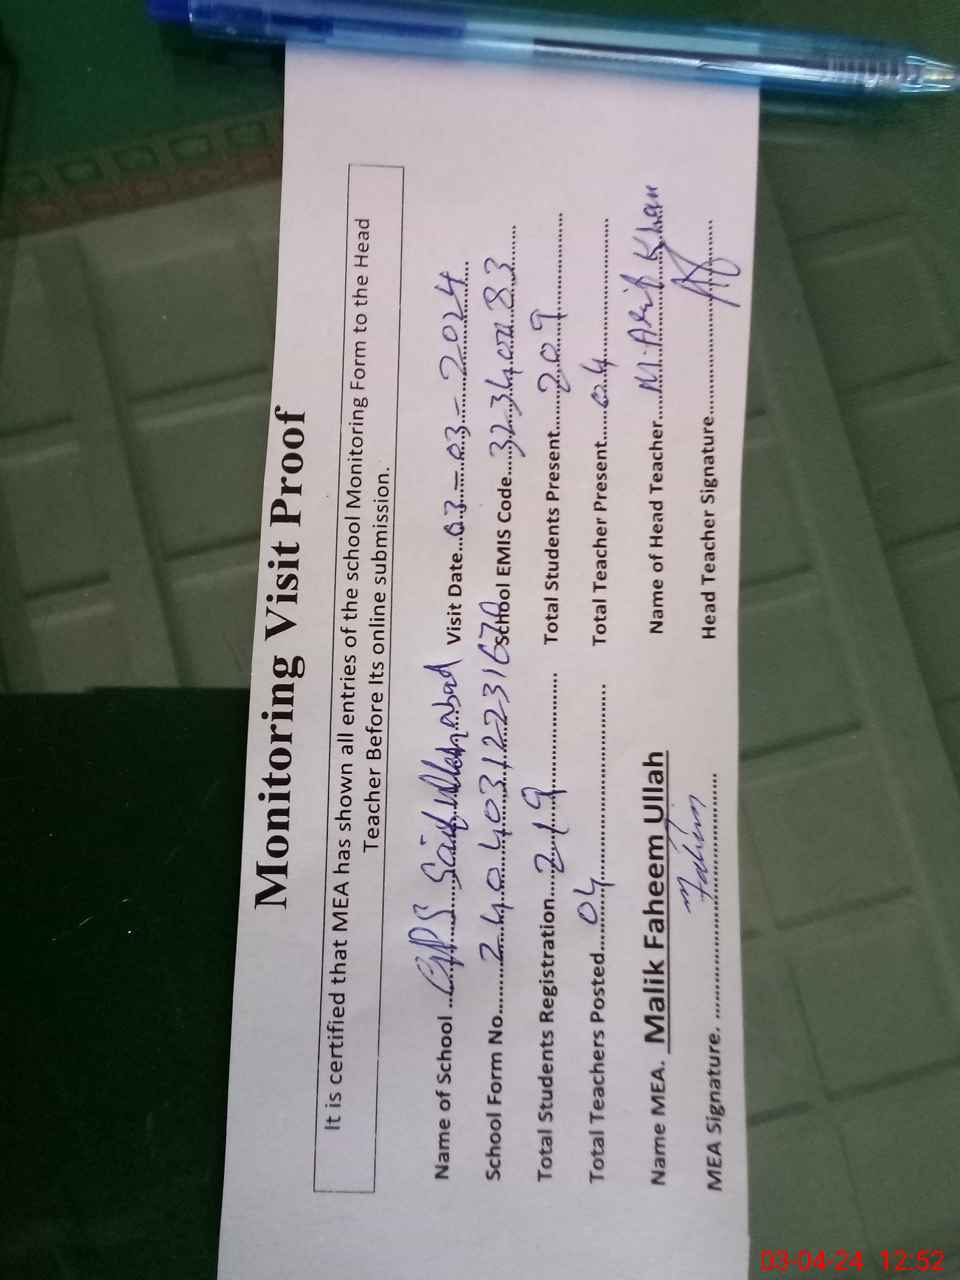 Monitoring Visit Proof
It is certified that MEA has shown all entries of the school Monitoring Form to the Head
Teacher Before Its online submission.
Name of School ...GPS Saif Ullah abad Visit Date...03-03-2024
School Form No...2404031223167 School EMIS Code...
Total Students Registration...219 Total Students Present...209
Total Teachers Posted...04 Total Teacher Present...04
Name MEA. Malik Faheem Ullah Name of Head Teacher...M. Arif Khan
MEA Signature. ...Faheem Head Teacher Signature...
03-04-24 12:52